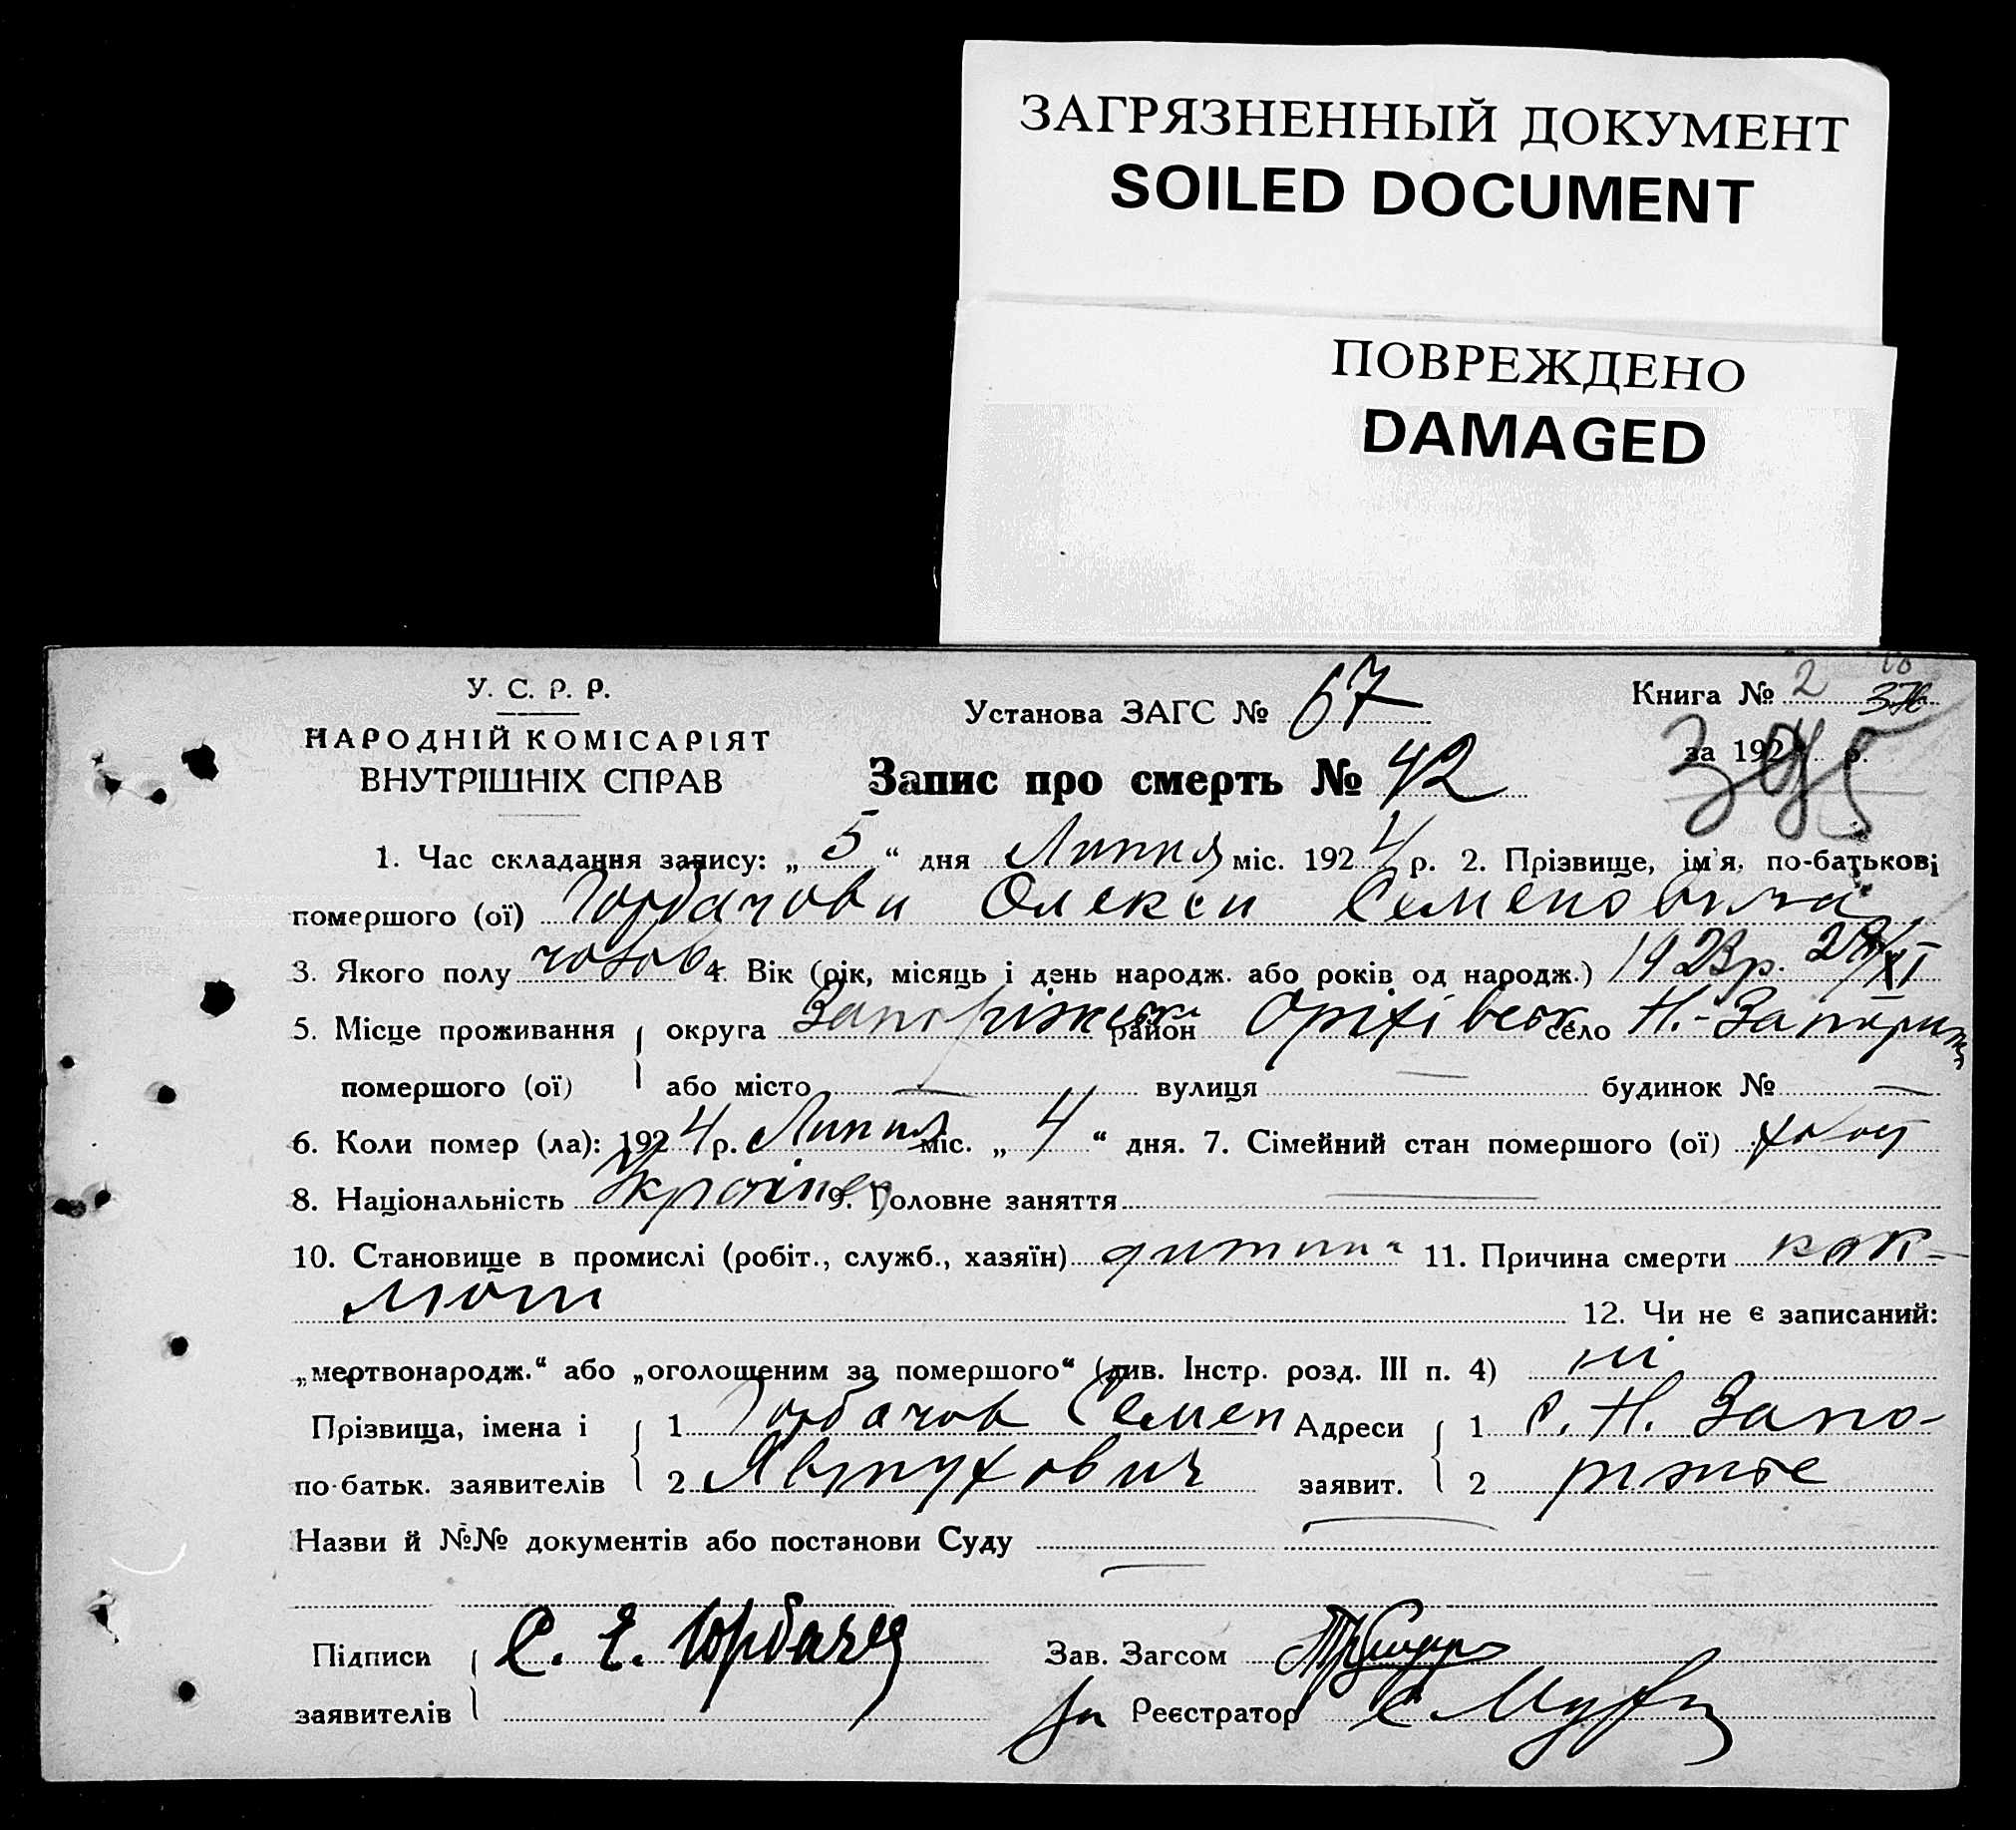 ЗАГРЯЗНЕННЫЙ ДОКУМЕНТ
SOILED DOCUMENT
ПОВРЕЖДЕНО
DAMAGED
У. С. Р. Р.
НАРОДНІЙ КОМІСАРІЯТ
ВНУТРІШНІХ СПРАВ
Установа ЗАГС № 67
Запис про смерть № 42
Книга № 2
за 1924 р.
395
1. Час складання запису: „5“ дня Липня міс. 1924 р. 2. Прізвище, ім'я, по-батькові
помершого (ої) Горбачови Олекси Семеновича
3. Якого полу чолов 4. Вік (рік, місяць і день народж. або років од народж.) 1923 р.
5. Місце проживання округа Запоріжська район Оріхівськ село Н.-Запоріж
помершого (ої) або місто — вулиця — будинок № —
6. Коли помер (ла): 1924 р. Липня міс. „4“ дня. 7. Сімейний стан помершого (ої) холост
8. Національність Українец 9. Головне заняття —
10. Становище в промислі (робіт., служб., хазяїн) дитина 11. Причина смерти кок-
люш
12. Чи не є записаний:
„мертвонародж.“ або „оголошеним за помершого“ (див. Інстр. розд. III п. 4) ні
Прізвища, імена і 1 Горбачов Семен Адреси 1 с. Н. Запо-
по-батьк. заявителів 2 Явтухович заявит. 2 ріжже
Назви й №№ документів або постанови Суду —
Підписи С. Е. Горбачев Зав. Загсом
заявителів За Реєстратор